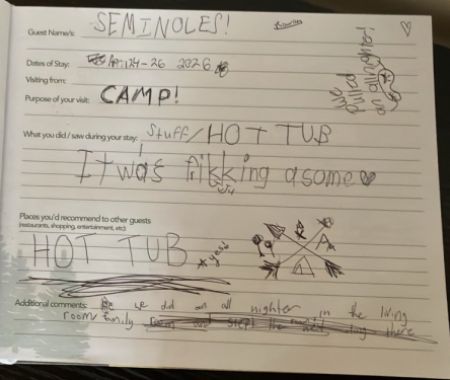 Guest Name/s: SEMINOLES!
We pulled an allnighter!
Dates of Stay: Apr. 24-26 2026
Visiting from:
Purpose of your visit: CAMP!
What you did / saw during your stay: Stuff/HOT TUB
It was frikking asome
Places you'd recommend to other guests
(restaurants, shopping, entertainment, etc):
HOT TUB *yes!
Additional comments: we did an all nighter in the living
room/family